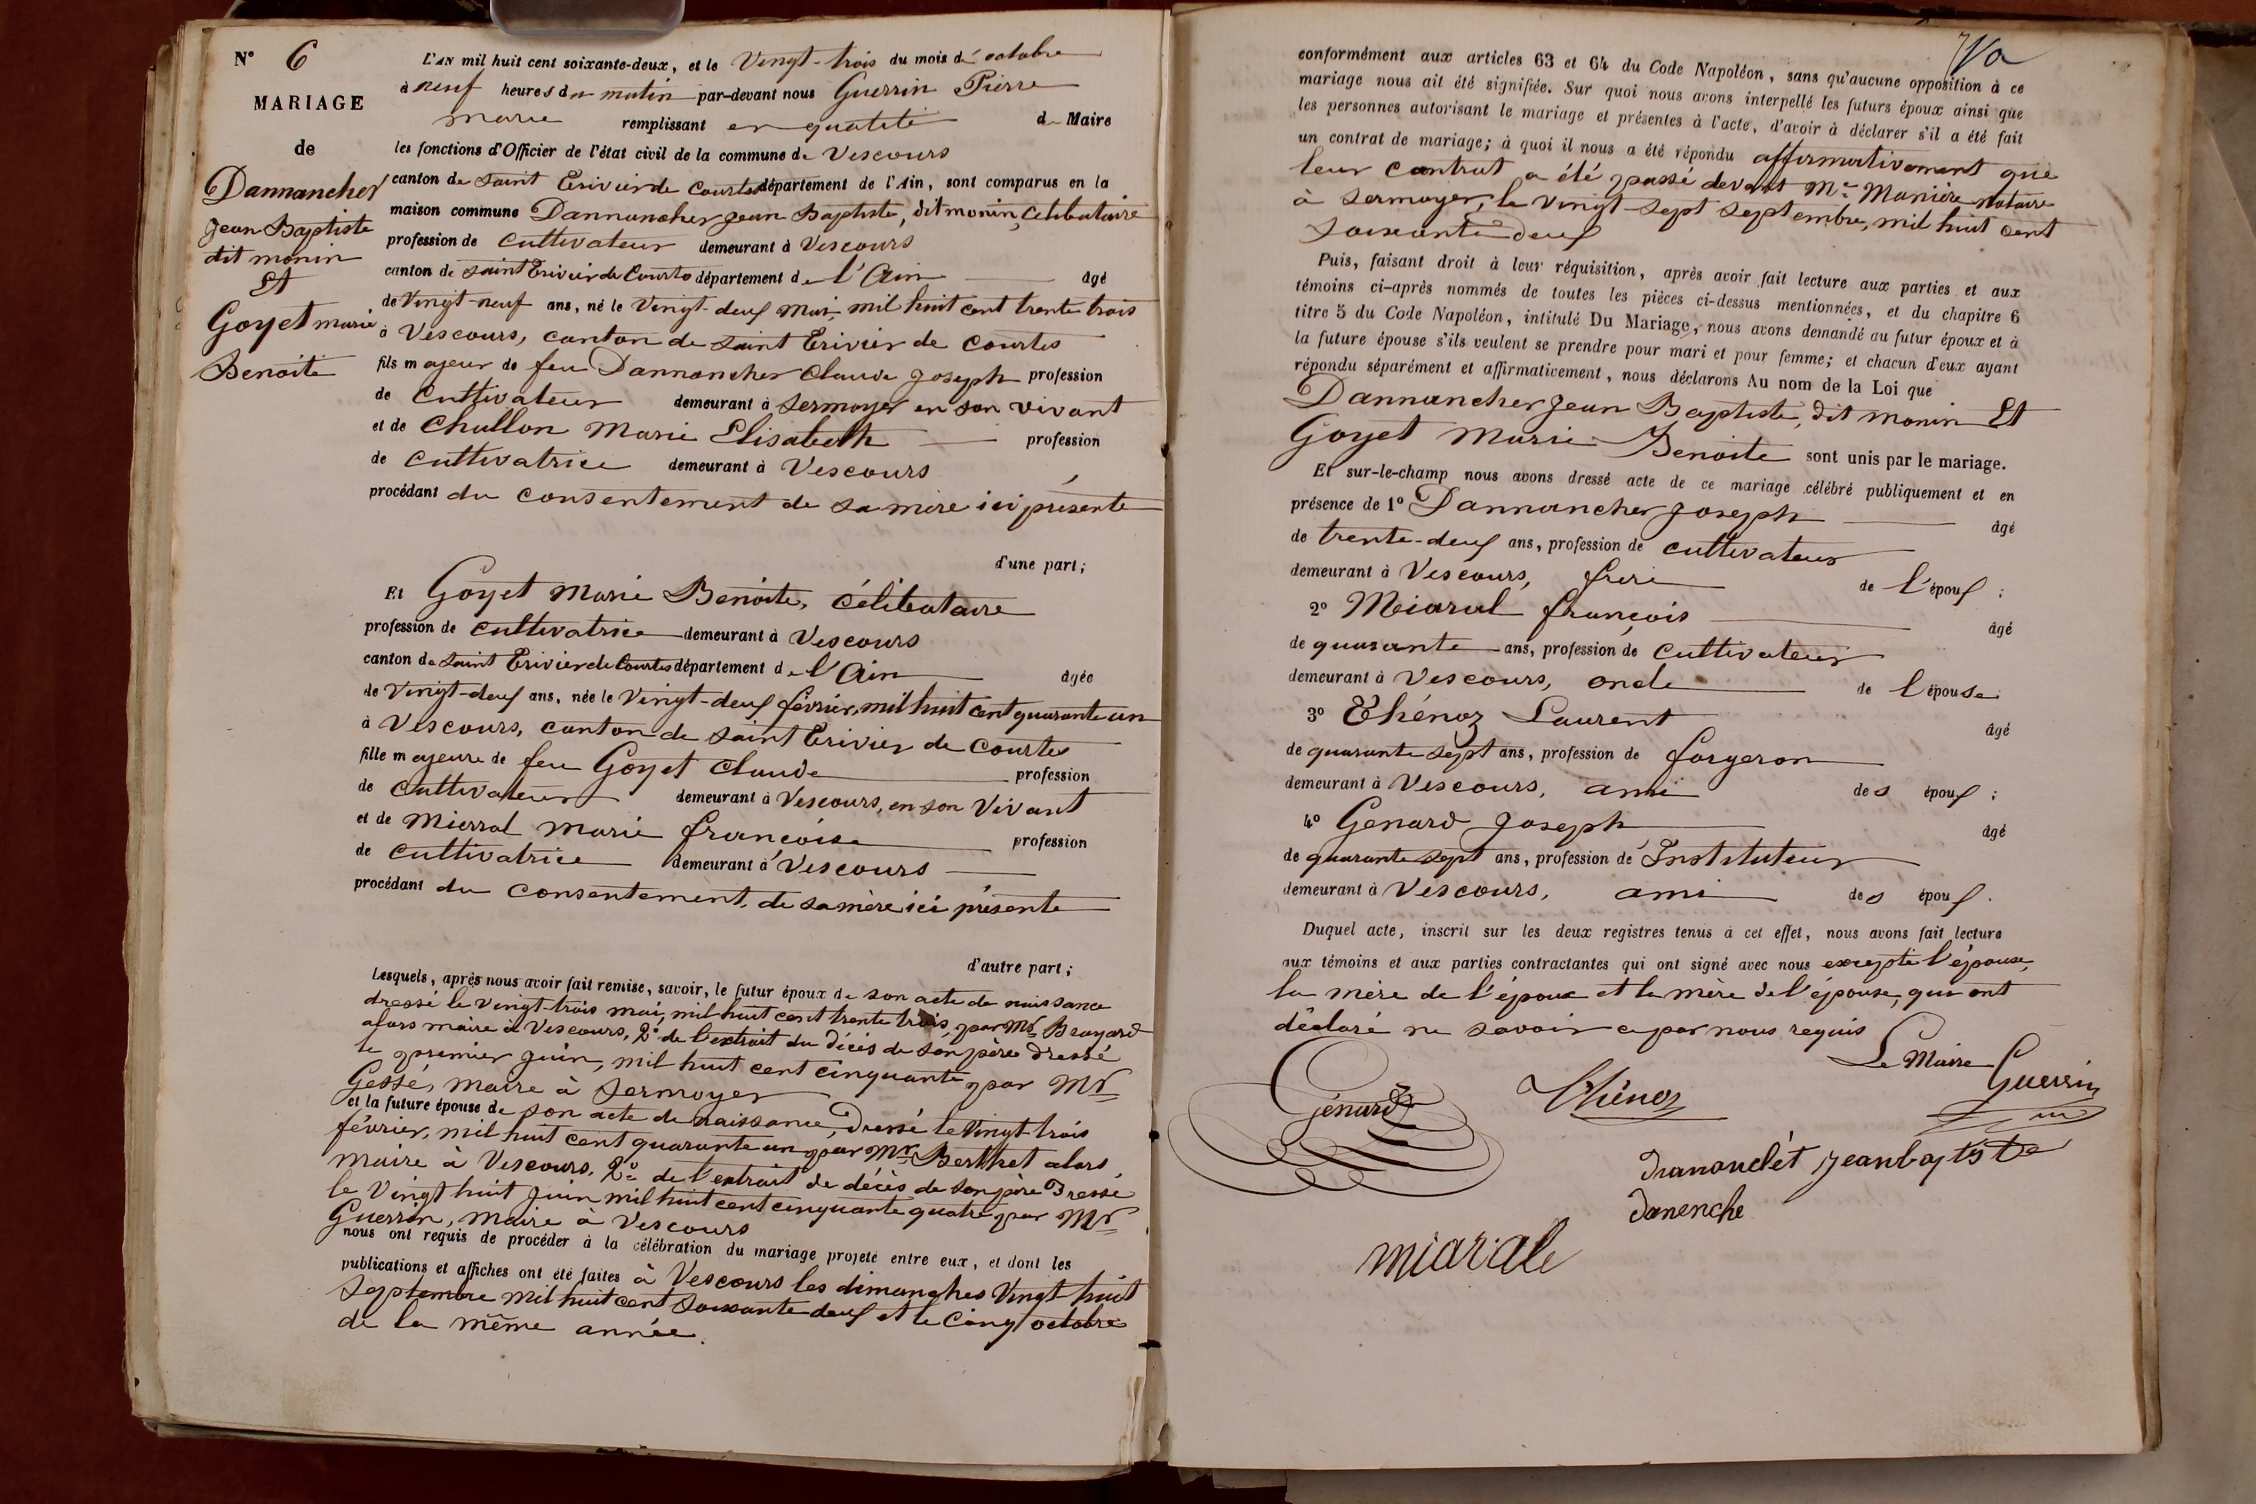 N° 6
MARIAGE
de
Dannancher
Jean Baptiste
dit monin
Et
Goyet marie
Benoite
L'AN mil huit cent soixante-deux, et le Vingt-trois du mois d'octobre
à neuf heures du matin par-devant nous Guerrin Pierre
maire remplissant en qualité de Maire
les fonctions d'Officier de l'état civil de la commune de Vescours
canton de saint Trivier de Courtes département de l'Ain, sont comparus en la
maison commune Dannancher jean Baptiste, dit monin, célibataire
profession de cultivateur demeurant à Vescours
canton de saint Trivier de Courtes département de l'Ain âgé
de Vingt-neuf ans, né le Vingt-deux mai, mil huit cent trente trois
à Vescours, canton de saint Trivier de Courtes
fils majeur de feu Dannancher Claude joseph profession
de Cultivateur demeurant à sermoyer en son vivant
et de Chullon Marie Elisabeth profession
de cultivatrice demeurant à Vescours
procédant du consentement de sa mère ici présente
d'une part;
Et Goyet Marie Benoite, célibataire
profession de cultivatrice demeurant à Vescours
canton de saint Trivier de Courtes département de l'Ain âgée
de Vingt-deux ans, née le Vingt-deux février, mil huit cent quarante un
à Vescours, canton de saint Trivier de Courtes
fille majeure de feu Goyet Claude profession
de cultivateur demeurant à Vescours, en son Vivant
et de Mierral Marie françoise profession
de cultivatrice demeurant à Vescours
procédant du consentement, de sa mère ici présente
d'autre part;
Lesquels, après nous avoir fait remise, savoir, le futur époux de son acte de naissance
dressé le vingt-trois mai, mil huit cent trente trois, par Mr Brayard
alors maire à Vescours, 2° de l'extrait du décès de son père dressé
le premier juin, mil huit cent cinquante par Mr
Gessé, maire à Sermoyer
et la future épouse de son acte de naissance, dressé le Vingt-trois
février, mil huit cent quarante un par Mr Berthet alors
maire à Vescours. 2° de l'extrait de décès de son père Dressé
le Vingt huit juin mil huit cent cinquante quatre par Mr
Guerrin, maire à Vescours
nous ont requis de procéder à la célébration du mariage projeté entre eux, et dont les
publications et affiches ont été faites à Vescours les dimanches Vingt huit
septembre mil huit cent soixante deux et le Cinq octobre
de la même année.
conformément aux articles 63 et 64 du Code Napoléon, sans qu'aucune opposition à ce
mariage nous ait été signifiée. Sur quoi nous avons interpellé les futurs époux ainsi que
les personnes autorisant le mariage et présentes à l'acte, d'avoir à déclarer s'il a été fait
un contrat de mariage; à quoi il nous a été répondu affirmativement que
leur contrat a été passé devant Me Manière notaire
à sermoyer, le vingt-sept septembre, mil huit cent
soixante deux
Puis, faisant droit à leur réquisition, après avoir fait lecture aux parties et aux
témoins ci-après nommés de toutes les pièces ci-dessus mentionnées, et du chapitre 6
titre 5 du Code Napoléon, intitulé Du Mariage, nous avons demandé au futur époux et à
la future épouse s'ils veulent se prendre pour mari et pour femme; et chacun d'eux ayant
répondu séparément et affirmativement, nous déclarons Au nom de la Loi que
Dannancher jean Baptiste, dit monin Et
Goyet Marie Benoite sont unis par le mariage.
Et sur-le-champ nous avons dressé acte de ce mariage célébré publiquement et en
présence de 1° Dannancher joseph âgé
de trente-deux ans, profession de cultivateur
demeurant à Vescours, frère de l'époux;
2° Miaral françois âgé
de quarante ans, profession de cultivateur
demeurant à Vescours, oncle de l'épouse
3° Thénoz Laurent âgé
de quarante sept ans, profession de forgeron
demeurant à Vescours, ami des époux;
4° Genard Joseph âgé
de quarante sept ans, profession de Instituteur
demeurant à Vescours, ami des époux.
Duquel acte, inscrit sur les deux registres tenus à cet effet, nous avons fait lecture
aux témoins et aux parties contractantes qui ont signé avec nous excepté l'épouse,
la mère de l'époux et la mère de l'épouse, qui ont
déclaré ne savoir ce par nous requis
Le Maire Guerrin
Génard
Thénoz
jeanbaptiste
danenche
miarale